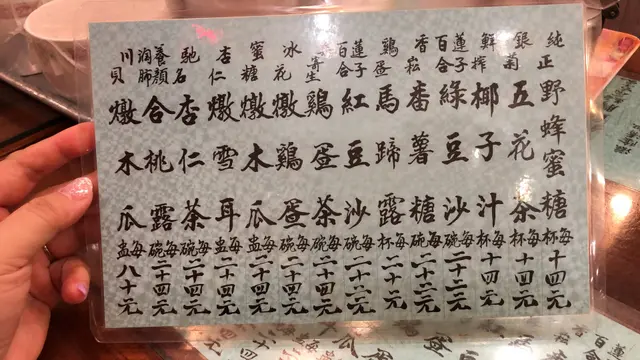 純正野蜂蜜糖每杯十四元
銀菊五花茶每杯十四元
鮮榨椰子汁每杯十四元
蓮子百合綠豆沙每碗二十二元
香菘番薯糖每碗二十二元
鷄蛋馬蹄露每杯二十二元
蓮子百合紅豆沙每碗二十二元
寄生鷄蛋茶每碗二十二元
冰花燉鷄蛋每碗二十四元
蜜糖燉木瓜每盅二十四元
杏仁燉雪耳每盅二十四元
馳名杏仁茶每碗二十四元
養顏淘肺合桃露每碗二十四元
川貝燉木瓜每盅八十元